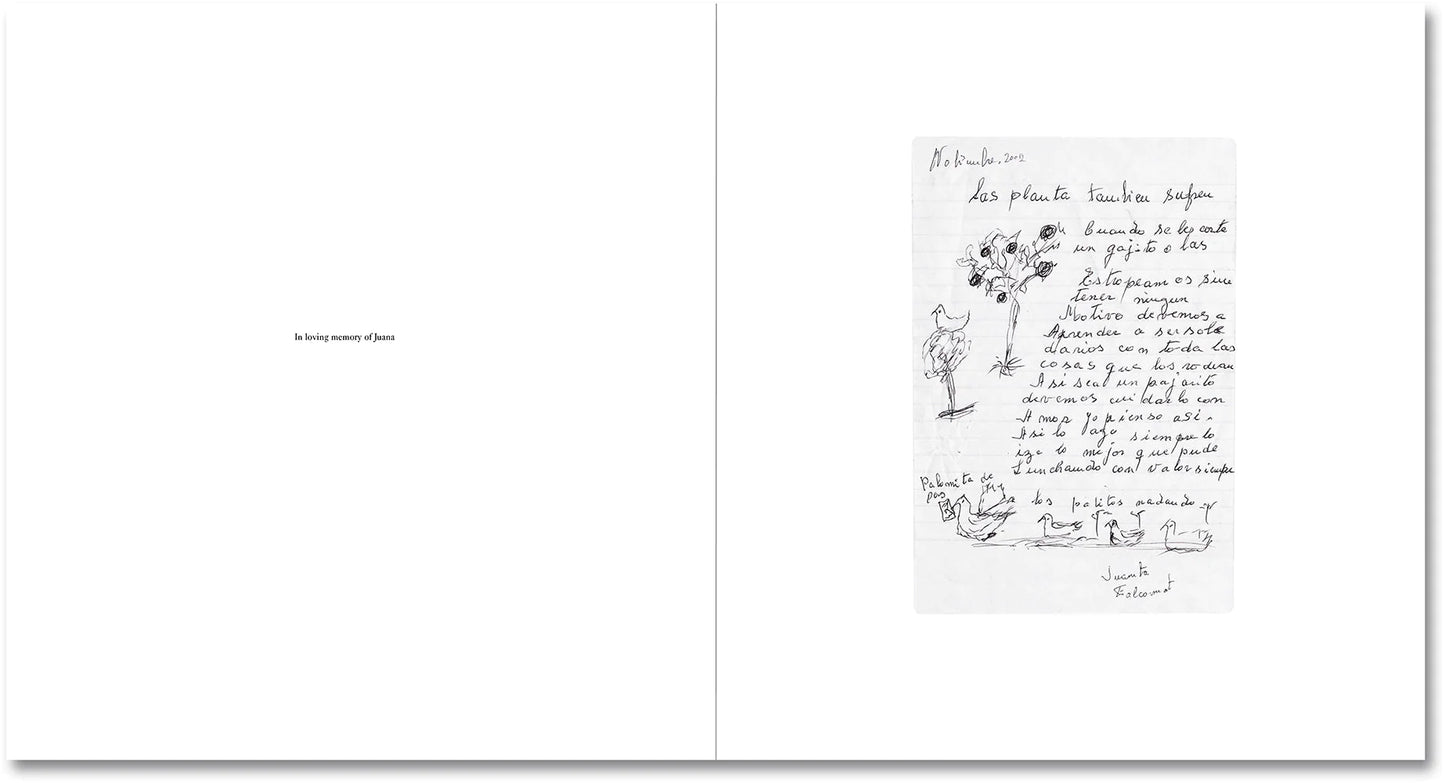 In loving memory of Juana
Noviembre, 2002
Las planta tambien sufren
Cuando se les corte
un gajito o las
Estropeamos sin
tener ningun
Motivo devemos a
Aprender a ser soli
darios con toda las
cosas que los rodean
Asi sea un pajarito
devemos cuidarlo con
Amor yo pienso asi.
Asi lo ago siempre lo
ize lo mejor que pude
Lunchando con valor siempre
Palomita de
pas
los patitos nadando
Juanita